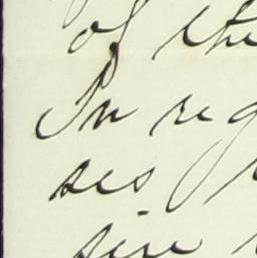 of the
In reg
ses
sire